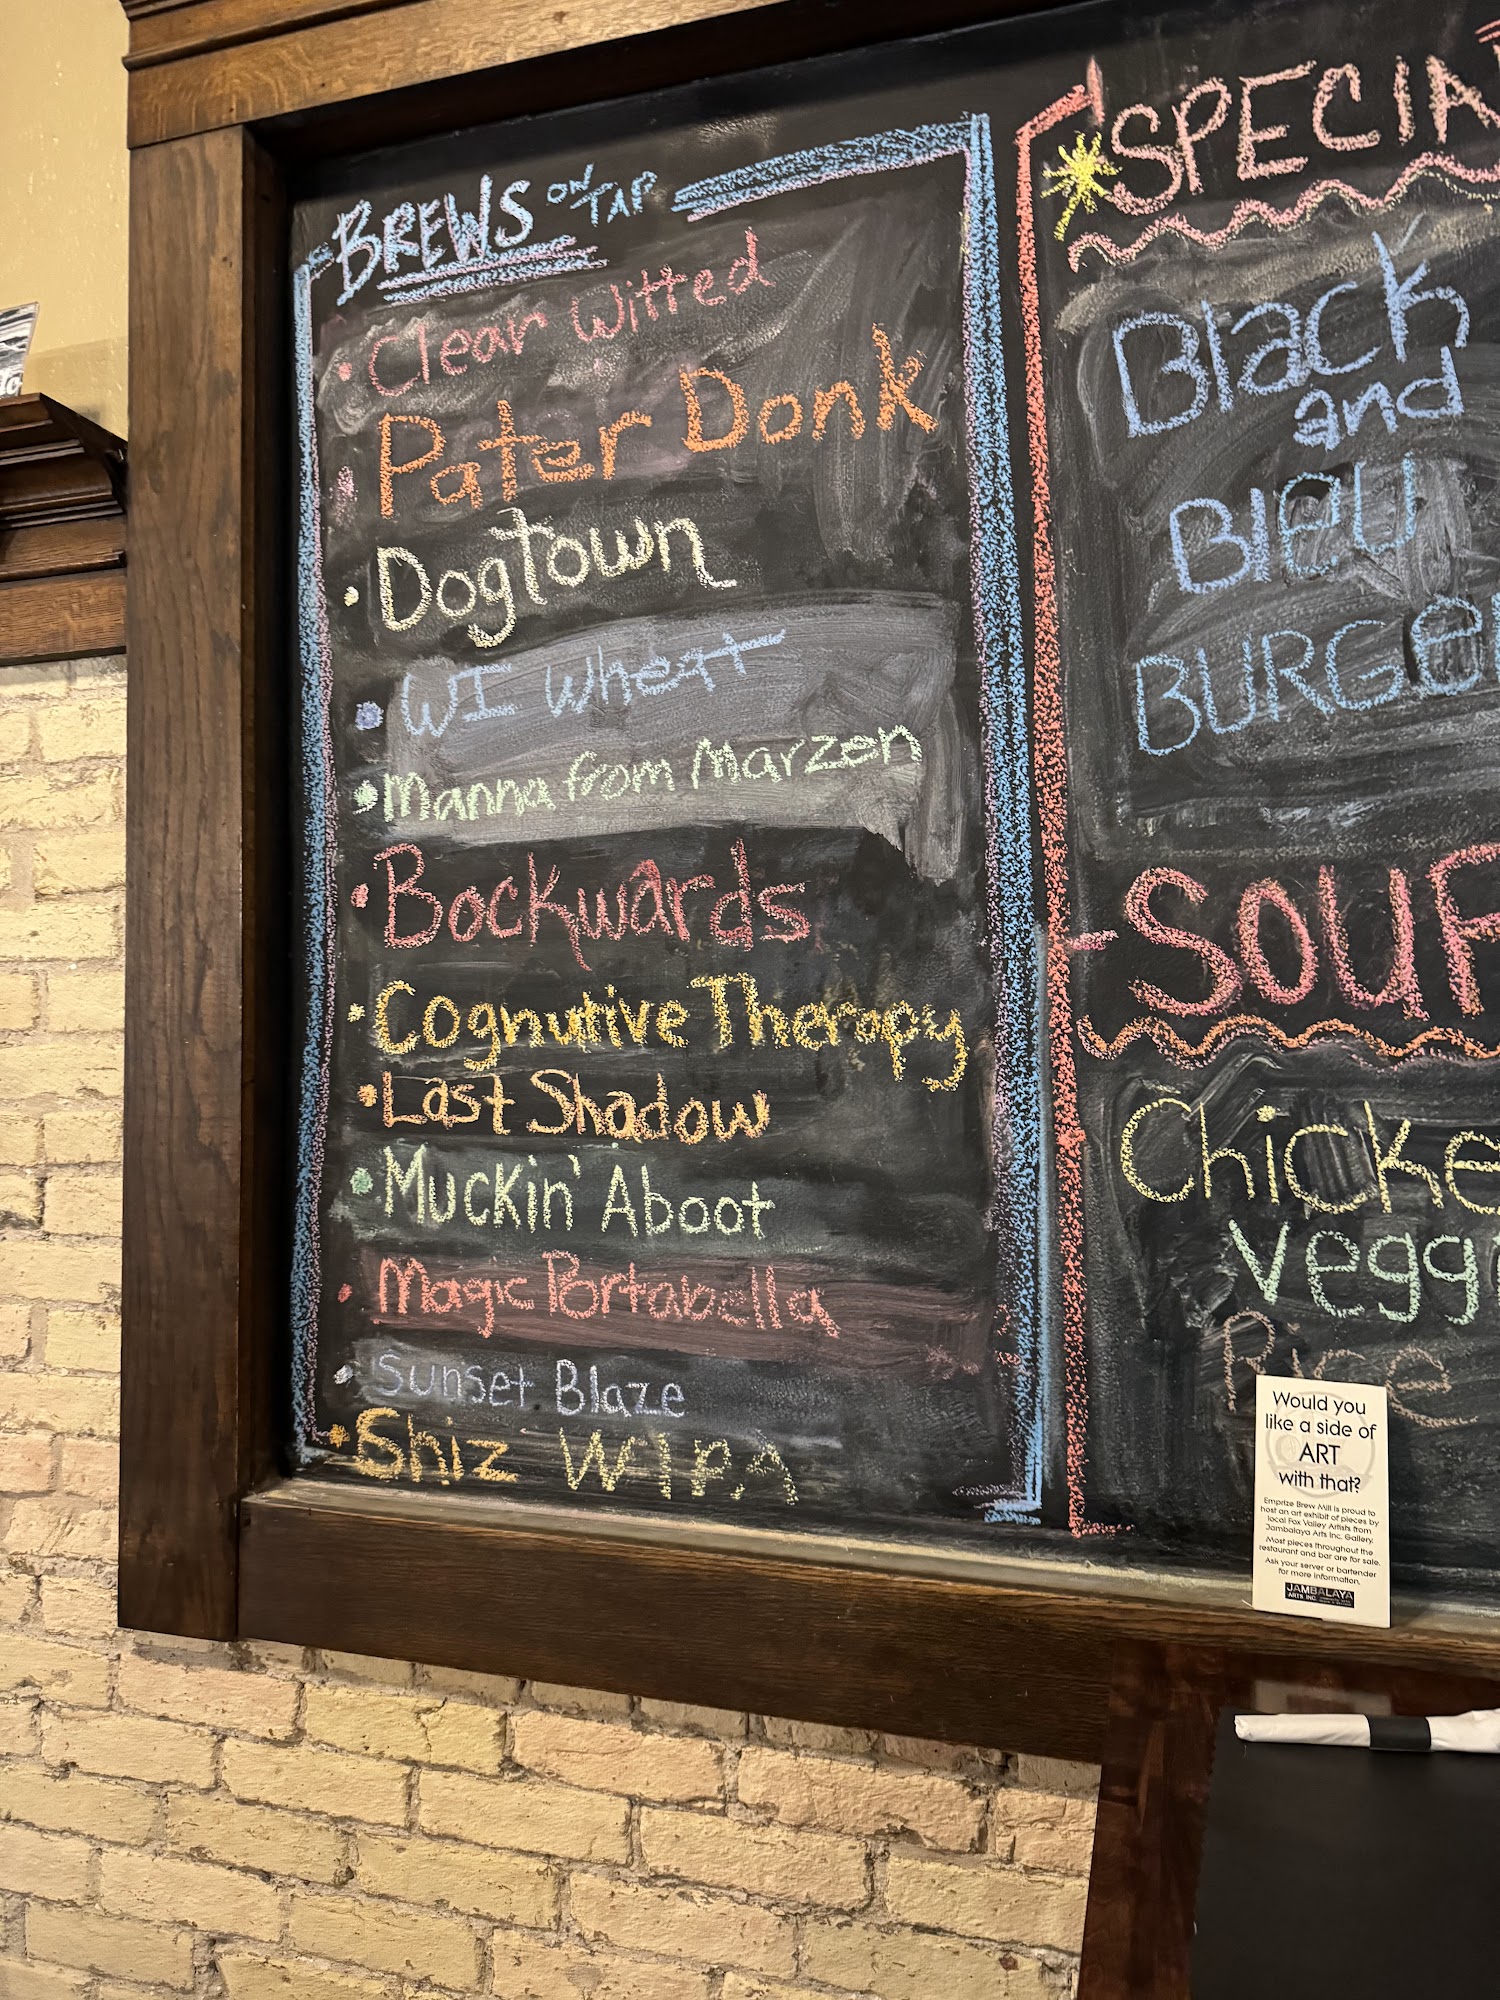 BREWS ON TAP
• Clear Witted
• Pater Donk
• Dogtown
• WI Wheat
• Manna from Marzen
• Bockwards
• Cognutive Therapy
• Last Shadow
• Muckin' Aboot
• Magic Portabella
• Sunset Blaze
• Shiz W.I.P.A
SPECIA
Black
and
Bleu
BURGE
SOUP
Chicke
Vegg
Rice
Would you
like a side of
ART
with that?
Emprize Brew Mill is proud to
host an art exhibit of pieces by
local Fox Valley Artists from
Jambalaya Arts Inc. Gallery.
Most pieces throughout the
restaurant and bar are for sale.
Ask your server or bartender
for more information.
JAMBALAYA
ARTS INC.